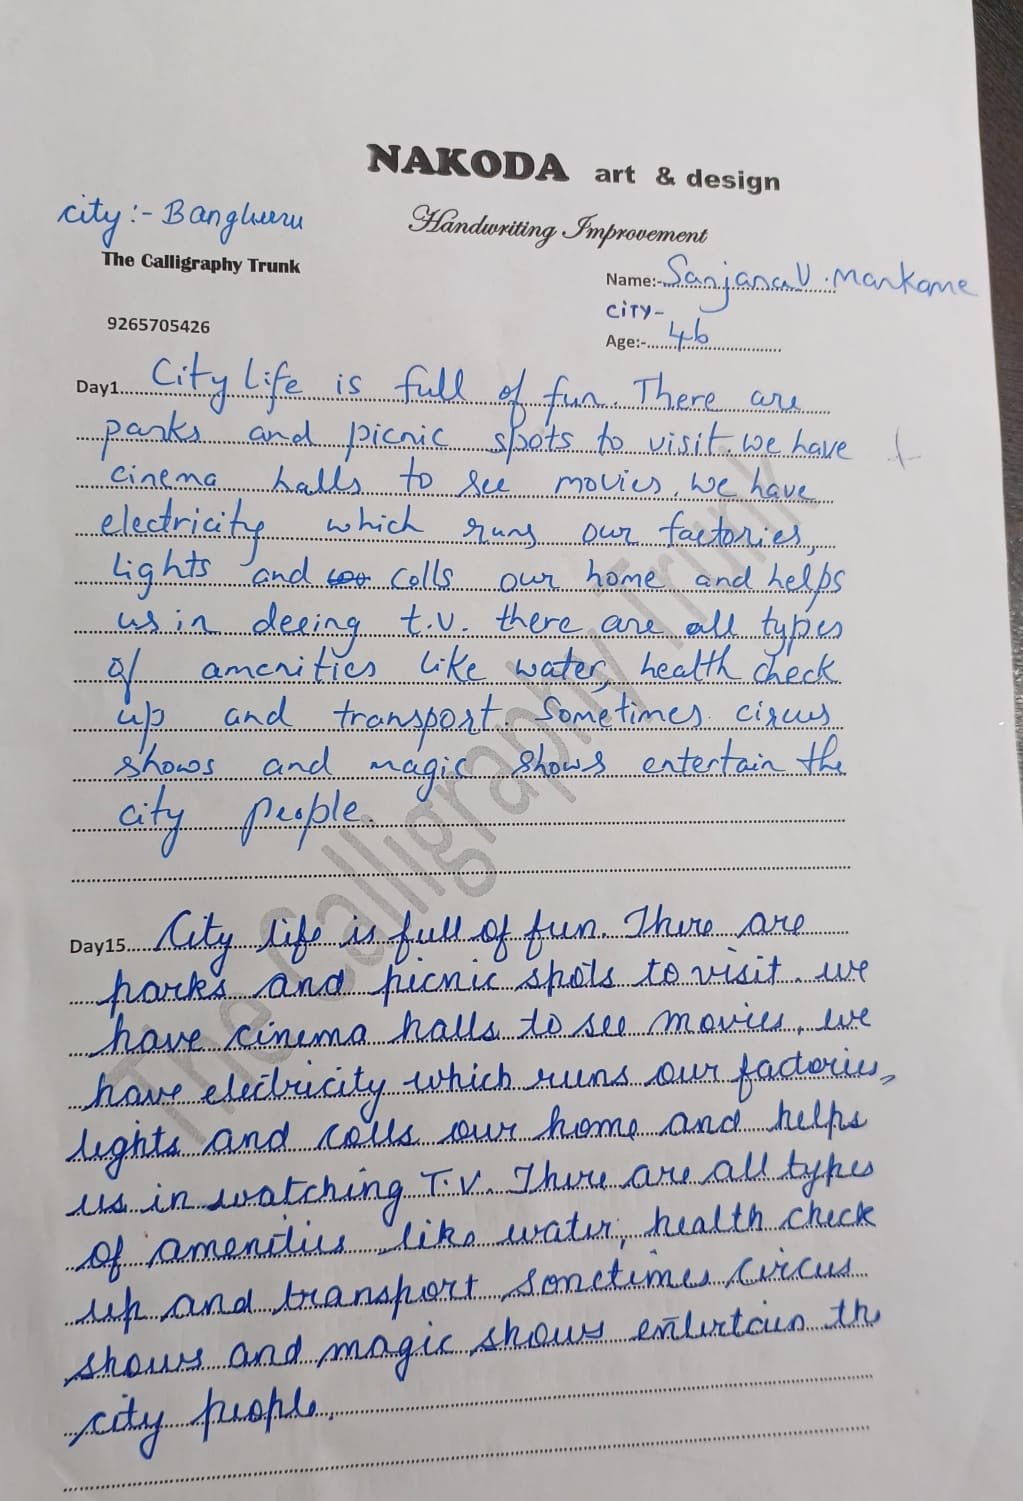 NAKODA art & design
city:- Bangluru
Handwriting Improvement
The Calligraphy Trunk
Name:- Sanjana V. Markame
CITY-
9265705426
Age:- 46
Day1 City Life is full of fun. There are
parks and picnic spots to visit. we have
cinema halls to see movies. we have
electricity which runs our factories,
lights and colls our home and helps
us in deeing t.v. there are all types
of amenities like water, health check
up and transport. Sometimes circus
shows and magic shows entertain the
city people.
Day15 City life is full of fun. There are
parks and picnic spots to visit. we
have cinema halls to see movies. we
have electricity which runs our factories,
lights and colls our home and helps
us in watching T.V. There are all types
of amenities like water, health check
up and transport sometimes circus
shows and magic shows entertain the
city people.
The Calligraphy Trunk